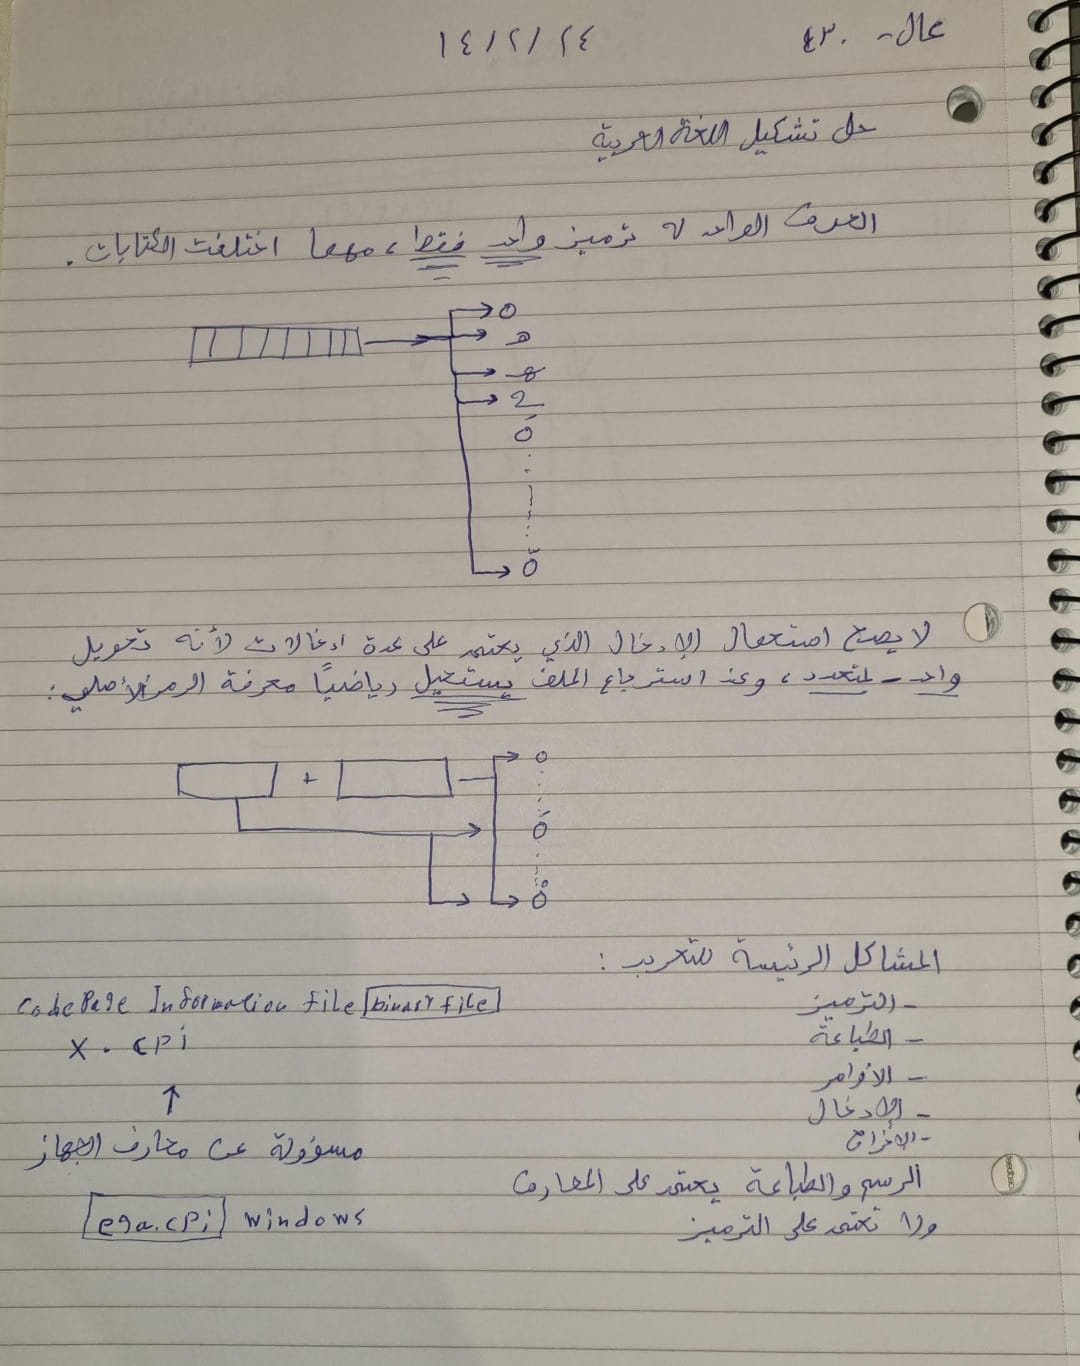 عال - ٤٣٠
١٤/٢/٢٤
حل تشكيل اللغة العربية
الحرف الواحد له ترميز واحد فقط، مهما اختلفت الكتابات.
ه
هـ
ـهـ
ـه
هَ
هّ
لا يصح استعمال الإدخال الذي يعتمد على عدة ادخالات لأنه تحويل
واحد - لمتعدد، وعند استرجاع الملف يستحيل رياضياً معرفة الرمز الأصلي:
+
ه
هَ
المشاكل الرئيسة للتعريب:
- الترميز
- الطباعة
- الأوامر
- الإدخال
- الأخراج
الرسم والطباعة يعتمد على المحارف
ولا تعتمد على الترميز
Code Page Information file binary file
x.cpi
↑
مسؤولة عن محارف الجهاز
ega.cpi windows